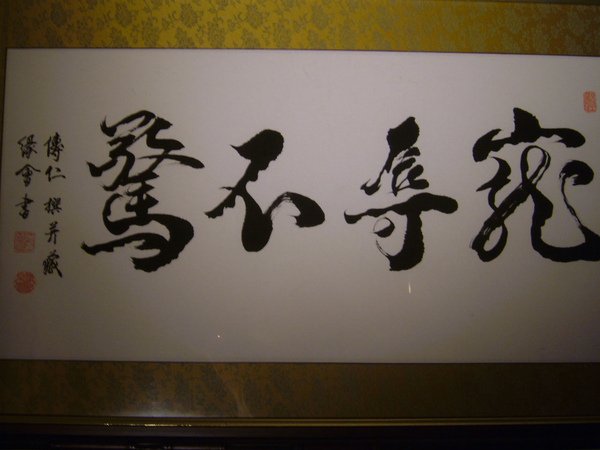 寵辱不驚
傅仁撰并藏
緣會書